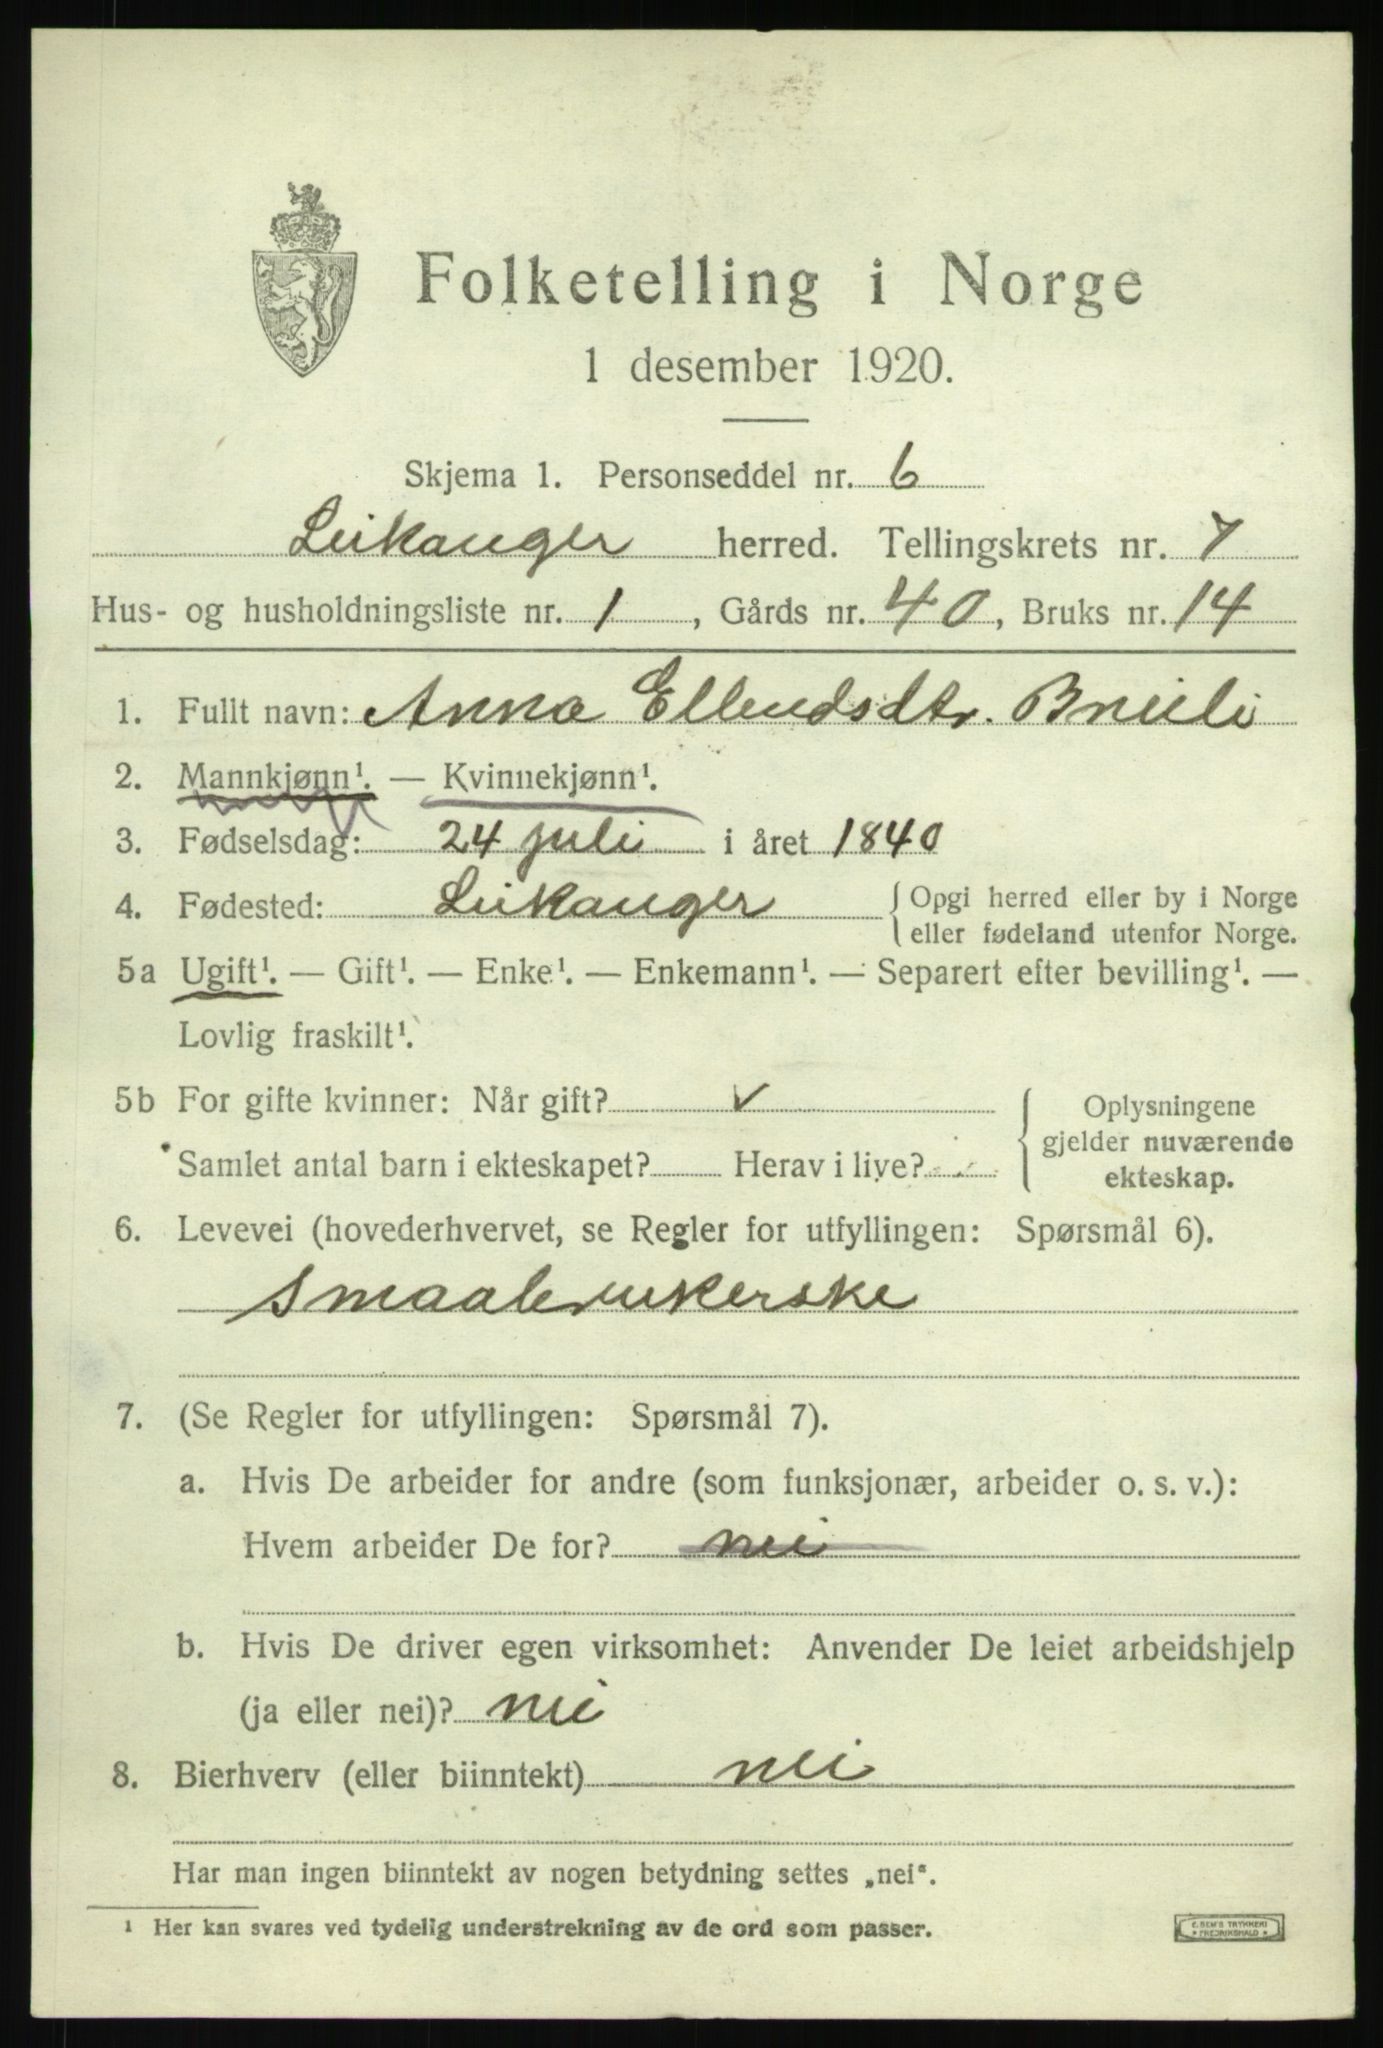 Folketelling i Norge
1 desember 1920.
Skjema 1. Personseddel nr. 6
Leikanger herred. Tellingskrets nr. 7
Hus- og husholdningsliste nr. 1, Gårds nr. 40, Bruks nr. 14
1. Fullt navn: Anna Ellendsdtr. Bnieli
2. Mannkjønn¹. — Kvinnekjønn¹.
3. Fødselsdag: 24 juli i året 1840
4. Fødested: Leikanger { Opgi herred eller by i Norge
eller fødeland utenfor Norge.
5a Ugift¹. — Gift¹. — Enke¹. — Enkemann¹. — Separert efter bevilling¹. —
Lovlig fraskilt¹.
5b For gifte kvinner: Når gift? v
Samlet antal barn i ekteskapet? Herav i live?
{ Oplysningene
gjelder nuværende
ekteskap.
6. Levevei (hovederhvervet, se Regler for utfyllingen: Spørsmål 6).
Smaabrukerske
7. (Se Regler for utfyllingen: Spørsmål 7).
a. Hvis De arbeider for andre (som funksjonær, arbeider o. s. v.):
Hvem arbeider De for? nei
b. Hvis De driver egen virksomhet: Anvender De leiet arbeidshjelp
(ja eller nei)? nei
8. Bierhverv (eller biinntekt) nei
Har man ingen biinntekt av nogen betydning settes „nei".
¹ Her kan svares ved tydelig understrekning av de ord som passer.
E. SEM'S TRYKKERI
* FREDRIKSHALD *